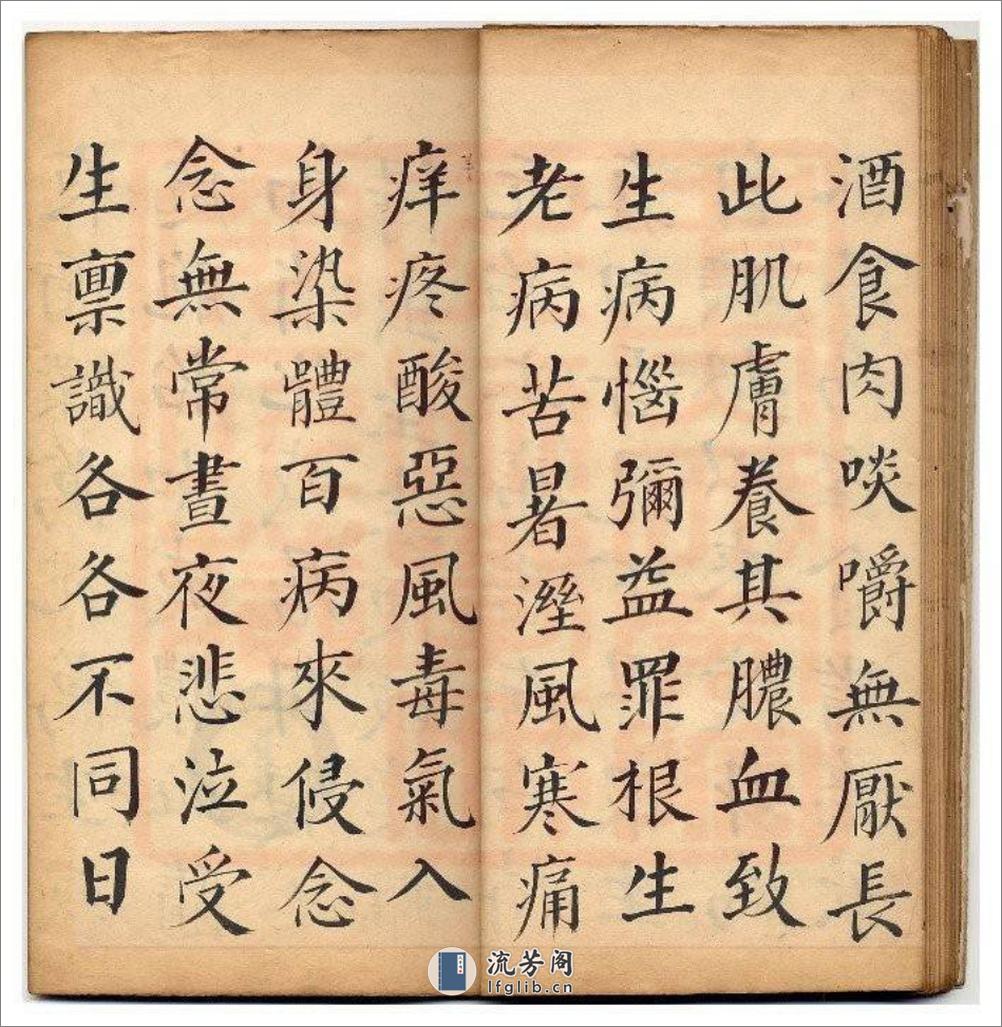 酒食肉啖嚼無厭長
此肌膚養其膿血致
生病惱彌益罪根生
老病苦暑溼風寒痛
痒疼酸惡風毒氣入
身染體百病來侵念
念無常晝夜悲泣受
生禀識各各不同日
流芳阁
lfglib.cn